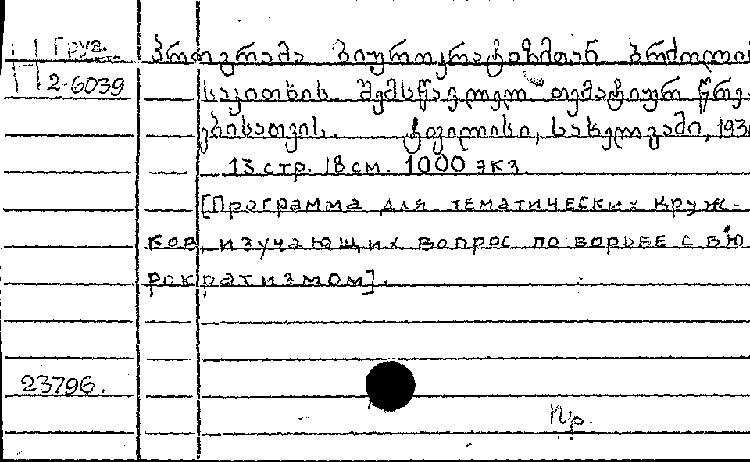 Груз.
П
2-6039
პროგრამა ბიუროკრატიზმთან ბრძოლის
საკითხის შემსწავლელ თემატიურ წრე-
ებისათვის. ტფილისი, სახელგამი, 193
13 стр. 18 см. 1000 экз.
[Программа для тематических круж-
ков, изучающих вопрос по борьбе с бю
рократизмом].
23796.